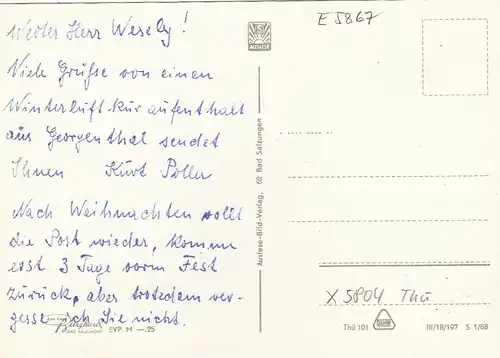 Werter Herr Wesely!
Viele Grüße von einen
Winterluftkuraufenthalt
aus Georgenthal sendet
Ihnen Kurt Poller
Nach Weihnachten rollt
die Post wieder, komme
erst 3 Tage vorm Fest
zurück, aber trotzdem ver-
gesse ich Sie nicht.
BAD SALZUNGEN
EVP M —.25
AUSLESE
Auslese-Bild-Verlag, 62 Bad Salzungen
E 5867
X 5804 Thü
Thü 101 III/18/197 S 1/68